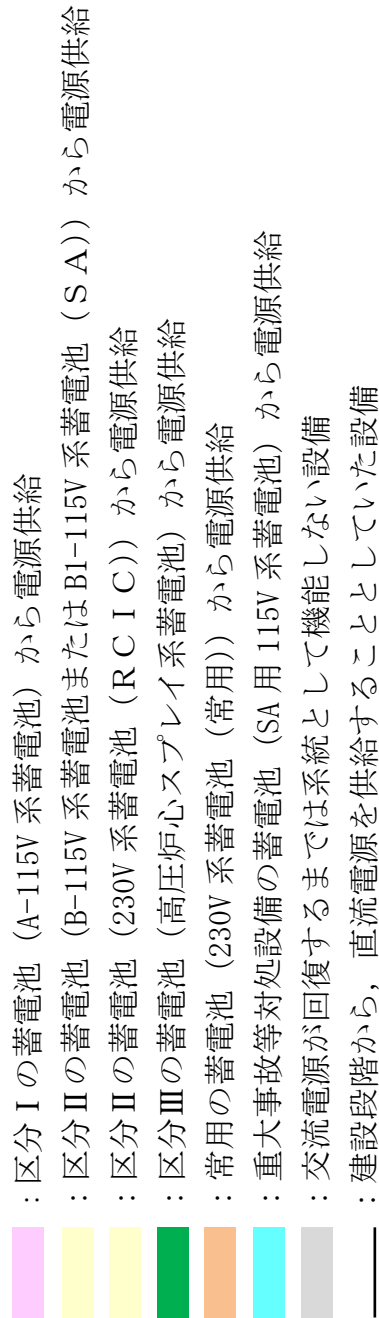 ：区分Ⅰの蓄電池（A-115V 系蓄電池）から電源供給
：区分Ⅱの蓄電池（B-115V 系蓄電池または B1-115V 系蓄電池（ＳＡ））から電源供給
：区分Ⅱの蓄電池（230V 系蓄電池（ＲＣＩＣ））から電源供給
：区分Ⅲの蓄電池（高圧炉心スプレイ系蓄電池）から電源供給
：常用の蓄電池（230V 系蓄電池（常用））から電源供給
：重大事故等対処設備の蓄電池（SA 用 115V 系蓄電池）から電源供給
：交流電源が回復するまでは系統として機能しない設備
：建設段階から，直流電源を供給することとしていた設備